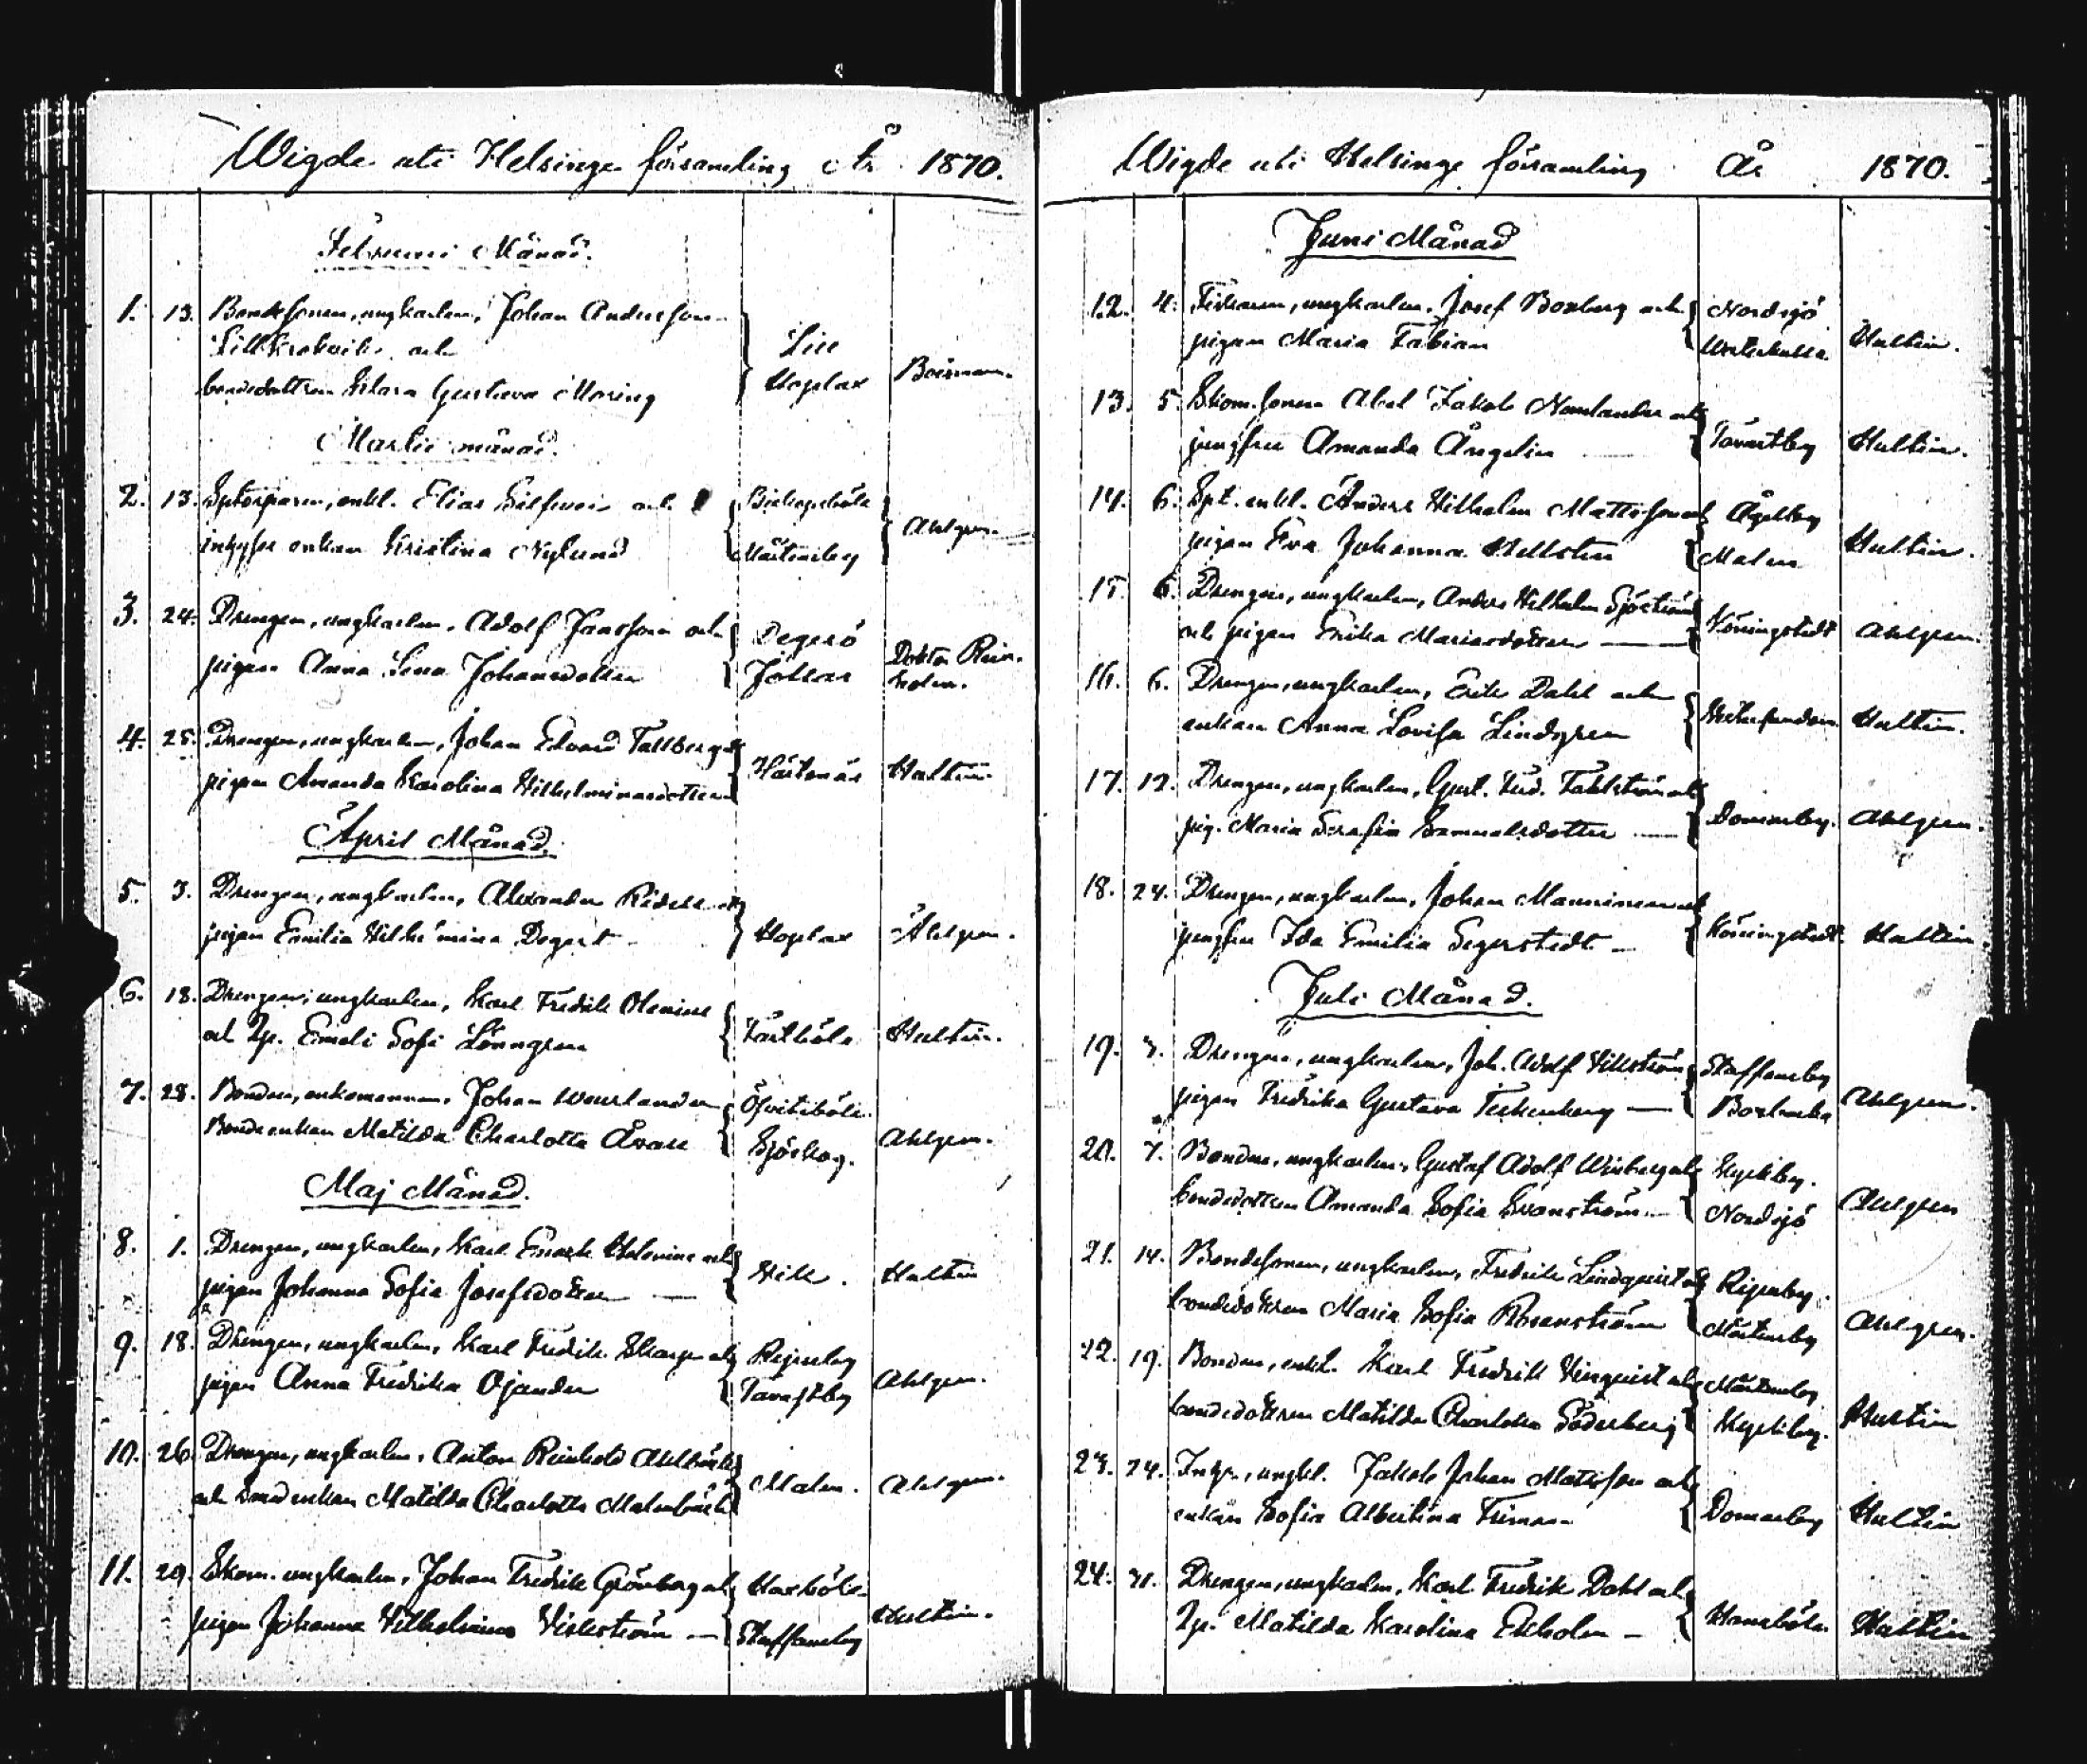 Wigde uti Helsinge församling År 1870.
Februari Månad.
1. 13. Bondesonen, ungkarlen, Johan Andersson
Lillkrokvik och
bondedottren Klara Gustava Moring
Lill
Hoplax
Boisman.
Martii månad.
2. 13. Sytorparen, enkl. Elias Silfver och
inhyses enkan Kristina Nylund
Biskopsböle
Mårtensby
Ahlgren.
3. 24. Drengen, ungkarlen, Adolf Jansson och
pigan Anna Lena Johansdotter
Degerö
Jollas
Doktor Rein-
holm.
4. 25. Drengen, ungkarlen, Johan Edvard Tallberg och
pigan Amanda Karolina Wilhelminasdotter
Hästnäs
Hultin.
April Månad.
5. 3. Drengen, ungkarlen, Alexander Ridell och
pigan Emilia Vilhelmina Degert
Hoplax
Ahlgren.
6. 18. Drengen, ungkarlen, Karl Fredrik Olenius
och Tp. Emeli Sofi Lönngren
Fastböle
Hultin.
7. 28. Bonden, enkomannen, Johan Weurlander
Bondeenkan Matilda Charlotta Åvall
Öfvitsböle
Sjöskog.
Ahlgren.
Maj Månad.
8. 1. Drengen, ungkarlen, Karl Enock Helenius och
pigan Johanna Sofia Josefsdotter
Hultin
9. 18. Drengen, ungkarlen, Karl Fredrik Skarp och
pigan Anna Fredrika Öjander
Ripuby
Tavastby
Ahlgren.
10. 26. Drengen, ungkarlen, Anton Reinhold Ahlbäck
och bondenkan Matilda Charlotta Malmbäck
Malm.
Ahlgren.
11. 29. Skom. ungkarlen, Johan Fredrik Grönberg och
pigan Johanna Vilhelmina Vickström
Haxböle
Staffansby
Hultin.
Wigde uti Helsinge församling År 1870.
Juni Månad
12. 4. Fiskaren, ungkarlen, Josef Boxberg och
pigan Maria Fabian
Nordsjö
Westerkulla
Hultin.
13. 5. Skom.sonen Abel Jakob Namlander och
jungfru Amanda Ångelin
Tavastby
Hultin.
14. 6. Spt. enkl. Anders Wilhelm Mattsson och
pigan Eva Johanna Hellsten
Åggelby
Malm
Hultin.
15. 6. Drengen, ungkarlen, Anders Wilhelm Sjöström
och pigan Erika Mariasdotter
Köningstedt
Ahlgren.
16. 6. Drengen, ungkarlen, Erik Dahl och
enkan Anna Lovisa Lindgren
Westersundom
Hultin.
17. 12. Drengen, ungkarlen, Gust. Fred. Fahlström och
pig. Maria Serafia Samuelsdotter
Domarby.
Ahlgren.
18. 24. Drengen, ungkarlen, Johan Manninen och
jungfru Ida Emilia Segerstedt
Köningstedt.
Hultin.
Juli Månad.
19. 3. Drengen, ungkarlen, Joh. Adolf Vickström
pigan Fredrika Gustava Teckenberg
Staffansby
Boxbacka
Ahlgren.
20. 7. Bonden, ungkarlen, Gustaf Adolf Winberg och
bondedottren Amanda Sofia Svanström
Kyrkby.
Nordsjö
Ahlgren
21. 14. Bondesonen, ungkarlen, Fredrik Lindqvist och
bondedottren Maria Sofia Rosenström
Ripuby.
Mårtensby
Ahlgren.
22. 19. Bonden, enkl. Karl Fredrik Vinqvist och
bondedottren Matilda Charlotta Söderberg
Mårtensby
Kyrkby.
Hultin
23. 24. Inhys., ungkl. Jakob Johan Matsson och
enkan Sofia Albertina Friman
Domarby
Hultin
24. 31. Drengen, ungkarlen, Karl Fredrik Dahl och
Tp. Matilda Karolina Ekholm
Hansböle.
Hultin